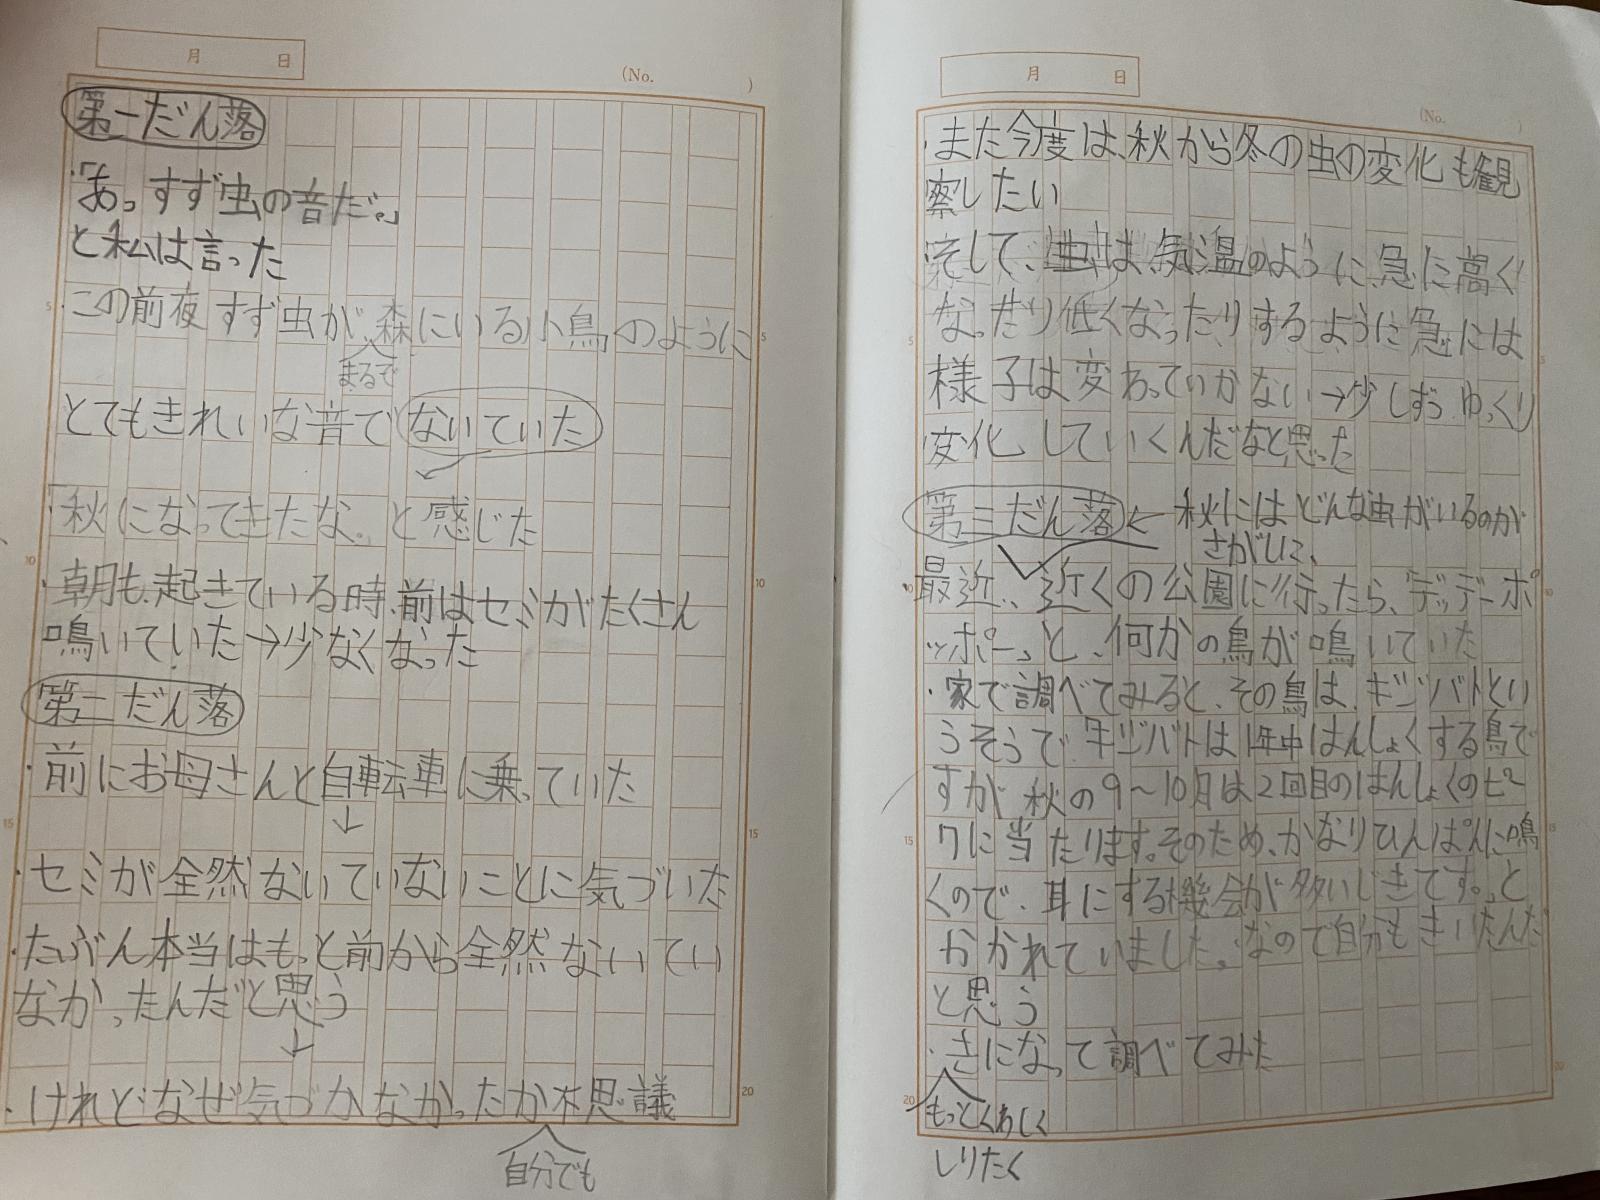 月 日
(No. )
第一だん落
・「あっすず虫の音だ。」
と私は言った
・この前夜すず虫が、森にいる小鳥のように
まるで
とてもきれいな音でないていた
「秋になってきたな。と感じた
・朝も、起きている時、前はセミがたくさん
鳴いていた→少なくなった
第二だん落
・前にお母さんと自転車に乗っていた
・セミが全然ないていないことに気づいた
・たぶん本当はもっと前から全然ないてい
なかったんだと思う
・けれどなぜ気づかなかったか不思議
自分でも
月 日
(No. )
・また今度は、秋から冬の虫の変化も観
察したい
そして、虫は、気温のように、急に高く
なったり低くなったりするように急には
様子は変わっていかない→少しずつゆっくり
変化していくんだなと思った
第三だん落←秋にはどんな虫がいるのか
さがしに、
・最近、近くの公園に行ったら、「デッデーポ
ッポー」と、何かの鳥が鳴いていた
・家で調べてみると、その鳥は、キジバトとい
うそうで「キジバトは1年中はんしょくする鳥で
すが秋の9～10月は2回目のはんしょくのピー
クに当たります。そのため、かなりひんぱんに鳴
くので、耳にする機会が多いじきです。」と
かかれていました。なので自分もきいたんだ
と思う
・きになって調べてみた
もっとくわしく
しりたく